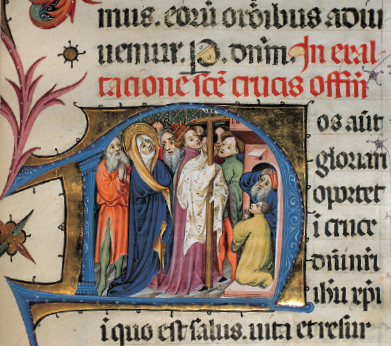 mus. eorū or̄dibus adiu
uemur. P. dnm̄. In exal
tacione sc̄e crucis offm̄
Nos aūt
gloriari
oportet
i cruce
dn̄i nr̄i
ihu xp̄i
i quo est salus. uita et resur